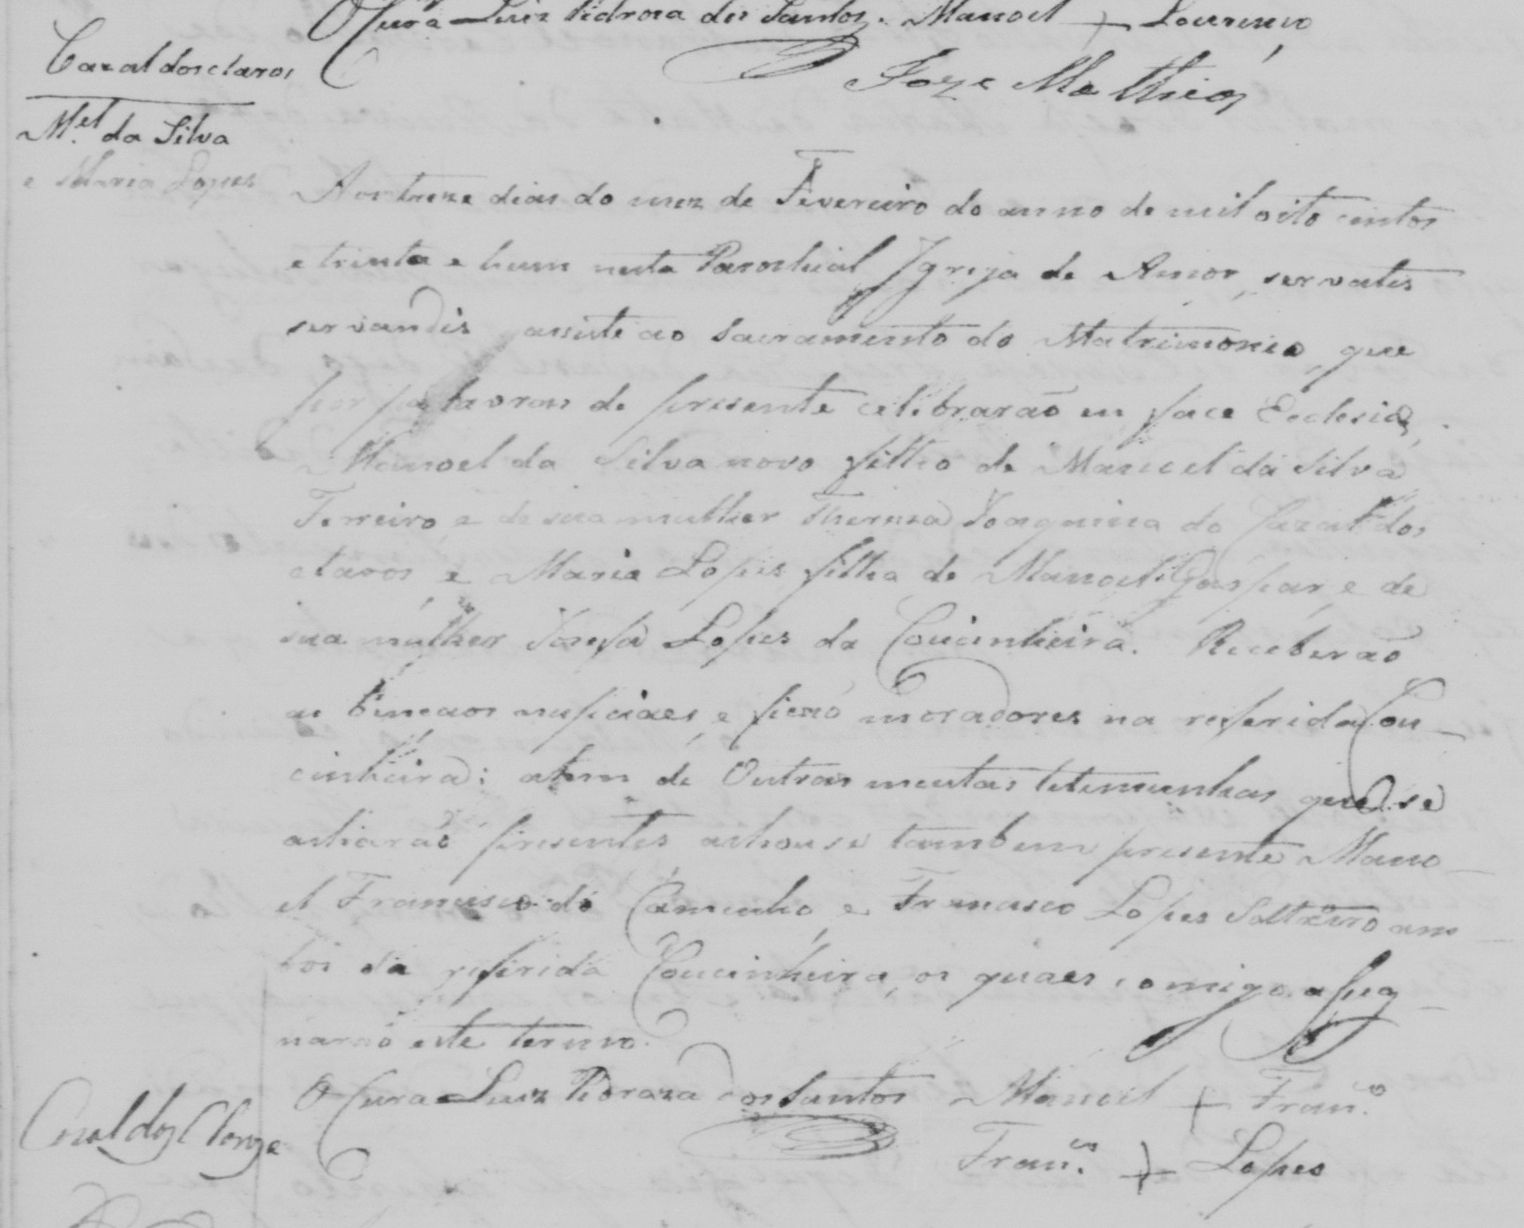 O Cura Luiz Pedroza dos Santos. Manoel + Lourenço
Joze Mathias
Cazal dos claros
M.el da Silva
e Maria Lopes
Aos treze dias do mez de Fevereiro do anno de mil oito centos
e trinta e hum nesta Parochial Igreja de Amor, servatis
servandis assisti ao Sacramento do Matrimonio, que
por palavras de presente celebrarão en face Eclesia,
Manoel da Silva novo filho de Manoel da Silva
Ferreiro, e de sua mulher Thereza Joaquina do Cazal dos
claros, e Maria Lopes filha de Manoel Gaspar, e de
sua mulher Josefa Lopes da Coucinheira. Receberão
as bençãos nupciaes, e ficão moradores na referida Cou-
cinheira; alem de Outras muitas testemunhas que se
acharaõ presentes achouse tambem presente Mano-
el Francisco do Caminho, e Francisco Lopes Solteiro am-
bos da referida Coucinheira, os quaes comigo assig-
narão este termo.
O Cura Luiz Pedroza dos Santos Manoel + Fran.co
Fran.co + Lopes
Casal dos Claros